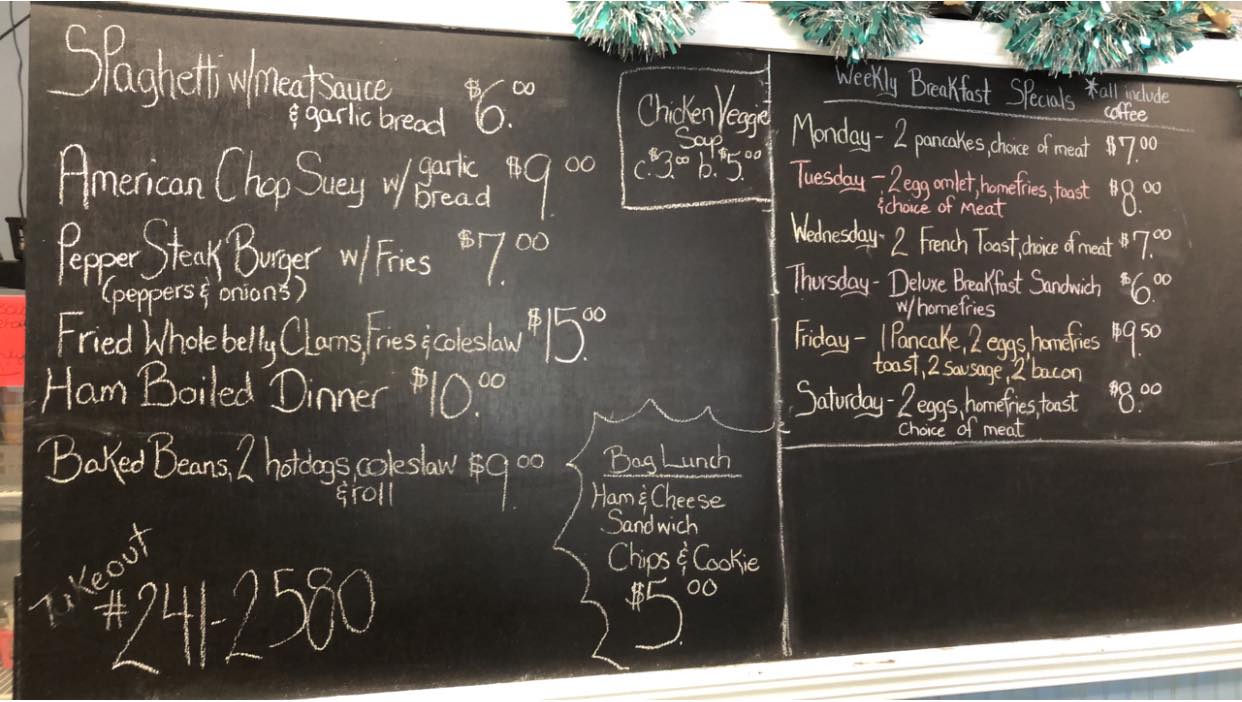 Spaghetti w/Meat Sauce $6.00
& garlic bread
American Chop Suey w/ garlic bread $9.00
Pepper Steak Burger w/ Fries $7.00
(peppers & onions)
Fried Whole belly Clams, Fries & coleslaw $15.00
Ham Boiled Dinner $10.00
Baked Beans, 2 hotdogs, coleslaw $9.00
& roll
Takeout
#241-2580
Chicken Veggie
Soup
c. $3.00 b. $5.00
Bag Lunch
Ham & Cheese
Sandwich
Chips & Cookie
$5.00
Weekly Breakfast Specials *all include
coffee
Monday - 2 pancakes, choice of meat $7.00
Tuesday - 2 egg omlet, homefries, toast $8.00
& choice of meat
Wednesday - 2 French Toast, choice of meat $7.00
Thursday - Deluxe Breakfast Sandwich $6.00
w/homefries
Friday - 1 Pancake, 2 eggs, homefries $9.50
toast, 2 sausage, 2 bacon
Saturday - 2 eggs, homefries, toast $8.00
choice of meat